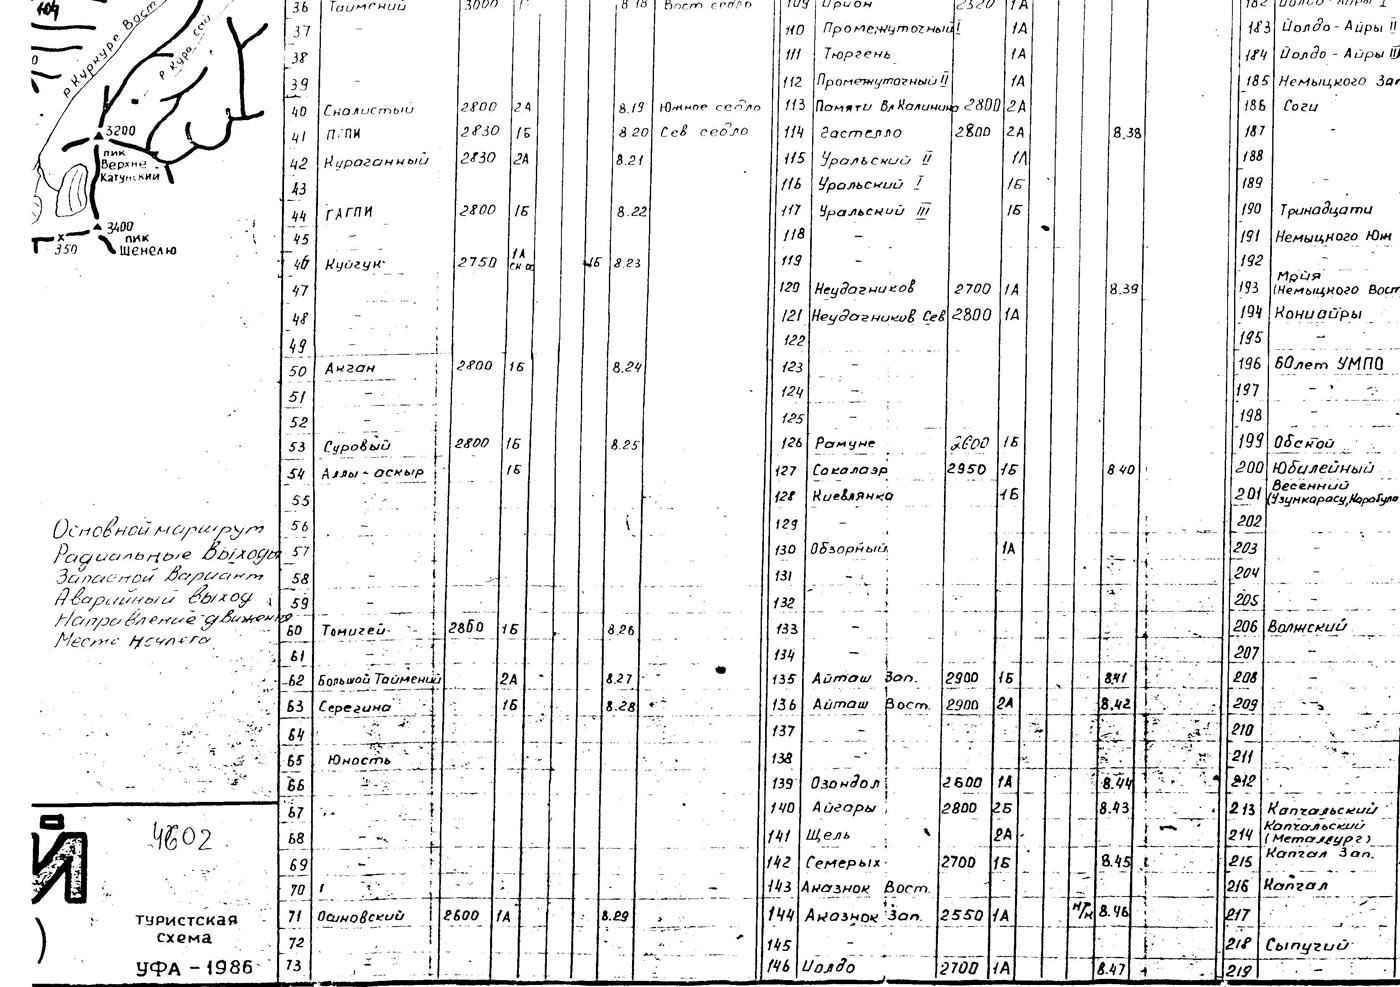 104
р. Куркуре Вост
р. Кура сай
3200
пик
Верхне-
Катунский
3400
пик
Шенелю
350
Основной маршрут
Радиальные Выходы
Запасной Вариант
Аварийный выход
Направление движения
Место ночлега
Й
4602
)
туристская
схема
УФА - 1986
36 Таймений 3000 8.18 Вост седло
37 -
38 -
39 -
40 Скалистый 2800 2А 8.19 Южное седло
41 ППИ 2830 1Б 8.20 Сев седло
42 Кураганный 2830 2А 8.21
43
44 ГАГПИ 2800 1Б 8.22
45 -
46 Куйгук 2750 1А 1Б 8.23
47 -
48 -
49 -
50 Акган 2800 1Б 8.24
51 -
52 -
53 Суровый 2800 1Б 8.25
54 Аллы-аскыр 1Б
55 -
56 -
57 -
58 -
59 -
60 Томичей 2860 1Б 8.26
61 -
62 Большой Таймений 2А 8.27
63 Серегина 1Б 8.28
64 -
65 Юность
66 -
67 -
68 -
69 -
70
71 Осиновский 2600 1А 8.29
72 -
73 -
109 Орион 2320 1А
110 Промежуточный I 1А
111 Тюргень 1А
112 Промежуточный II 1А
113 Памяти Вл Калинина 2800 2А
114 Гастелло 2800 2А 8.38
115 Уральский II 1А
116 Уральский I 1Б
117 Уральский III 1Б
118 -
119 -
120 Неудачников 2700 1А 8.39
121 Неудачников Сев 2800 1А
122 -
123 -
124 -
125 -
126 Рамуне 2600 1Б
127 Сакалаэр 2950 1Б 8.40
128 Киевлянка 1Б
129 -
130 Обзорный 1А
131 -
132 -
133 -
134 -
135 Айташ Зап. 2900 1Б 8.41
136 Айташ Вост. 2900 2А 8.42
137 -
138 -
139 Озондол 2600 1А 8.44
140 Айгары 2800 2Б 8.43
141 Щель 2А
142 Семерых 2700 1Б 8.45
143 Аказнок Вост.
144 Аказнок Зап. 2550 1А н/к 8.46
145 -
146 Иолдо 2700 1А 8.47
182 Йолдо-Айры I
183 Йолдо-Айры II
184 Йолдо-Айры III
185 Немыцкого Зап
186 Соги
187 -
188
189 -
190 Тринадцати
191 Немыцкого Юж
192 -
193 Мрия
(Немыцкого Вост
194 Кониайры
195 -
196 60 лет УМПО
197 -
198 -
199 Обской
200 Юбилейный
201 Весенний
(Узункарасу, Карабула
202
203 -
204 -
205 -
206 Волжский
207 -
208 -
209 -
210 -
211 -
212 -
213 Капчальский
214 Капчальский
(Металлург)
215 Капчал Зап.
216 Капчал
217 -
218 Сыпучий
219 -